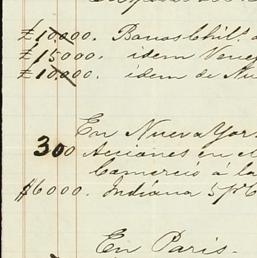 £10.000. Bonos Chils.
£15000. idem Venez
£10.000. idem de Nu
En Nueva York
300 Acciones en el
Comercio á la
$6000. Indiana 5 p%
En Paris.